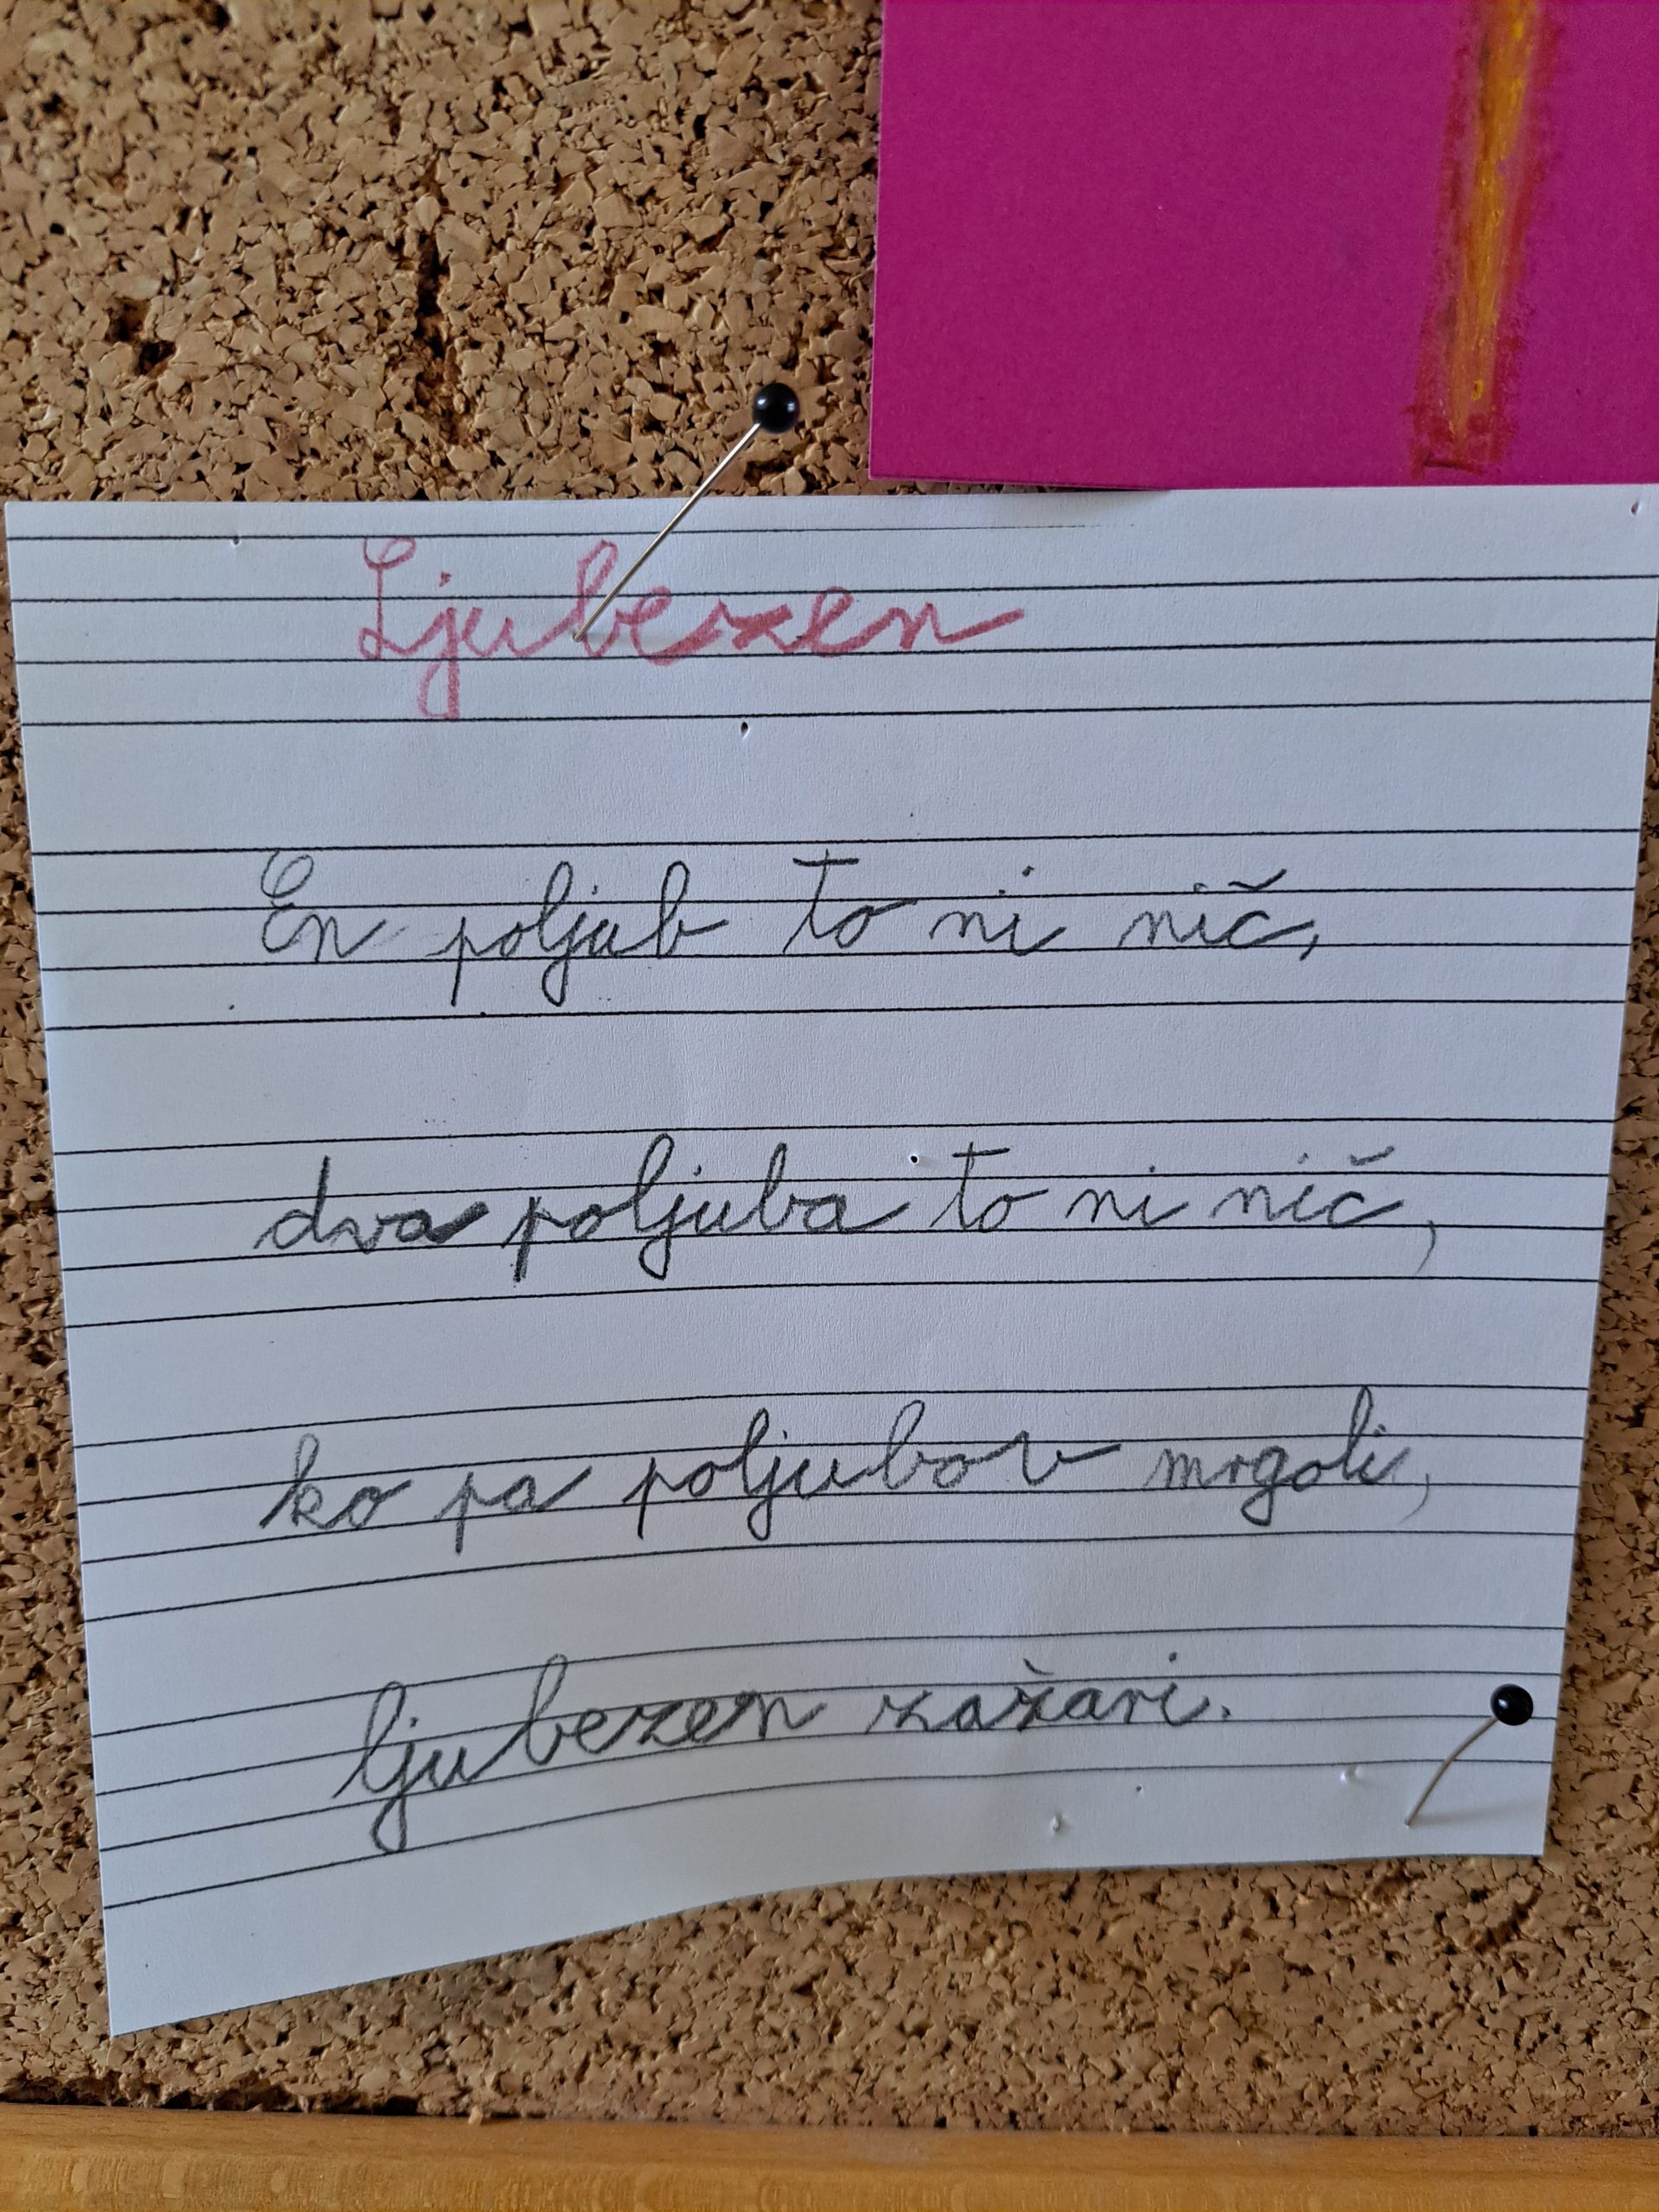 Ljubezen
En poljub to ni nič,
dva poljuba to ni nič,
ko pa poljubov mrgoli,
ljubezen zažari.